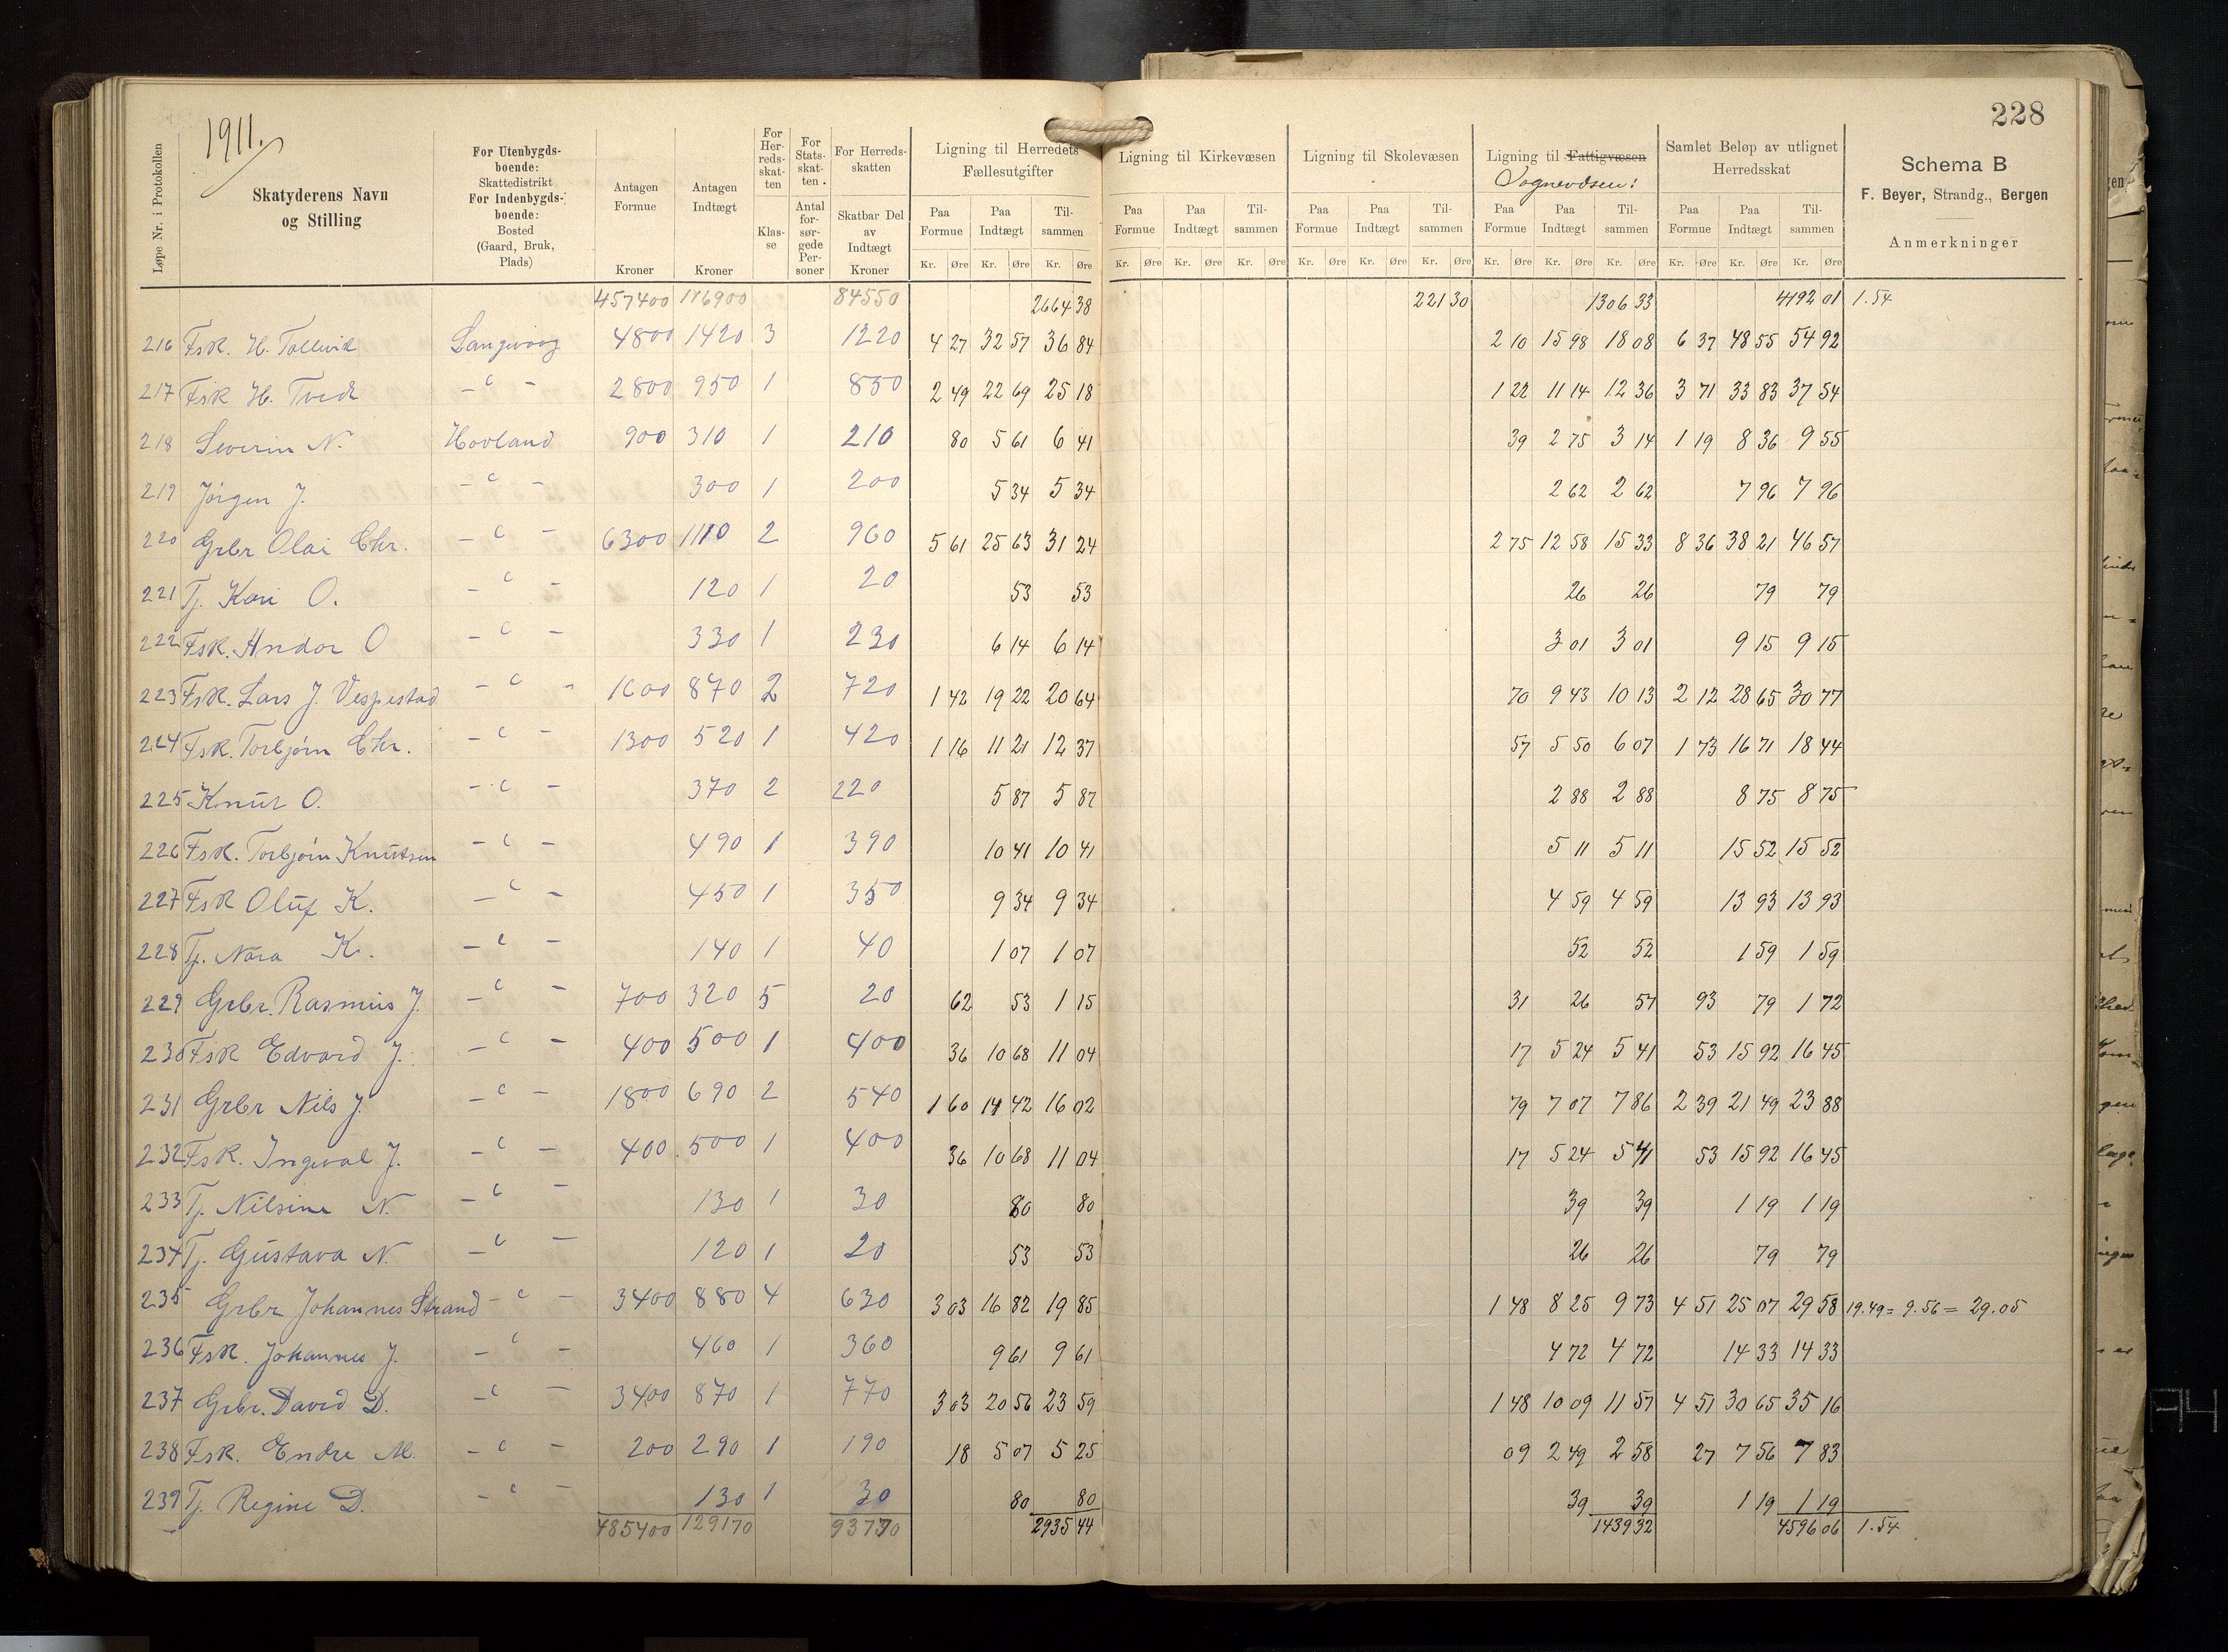 228
1911.
Løpe Nr. i Protokollen
Skatyderens Navn
og Stilling
For Utenbygds-
boende:
Skattedistrikt
For Indenbygds-
boende:
Bosted
(Gaard, Bruk,
Plads)
Antagen
Formue
Kroner
Antagen
Indtægt
Kroner
For
Her-
reds-
skat-
ten
Klas-
se
For
Stats-
skat-
ten.
Antal
for-
sør-
gede
Per-
soner
For Herreds-
skatten
Skatbar Del
av
Indtægt
Kroner
Ligning til Herredets
Fællesutgifter
Ligning til Kirkevæsen
Ligning til Skolevæsen
Ligning til Fattigvæsen
Sognevæsen:
Samlet Beløp av utlignet
Herredsskat
Paa Formue Paa Indtægt Til-sammen
Kr. Øre Kr. Øre Kr. Øre
Schema B
F. Beyer, Strandg., Bergen
Anmerkninger
457400 116900 84550 2664 38 221 30 1306 33 4192 01 1.54
216 Fsk. H. Tollevik Langevaag 4800 1420 3 1220 4 27 32 57 36 84 2 10 15 98 18 08 6 37 48 55 54 92
217 Fsk H. Tvedt -"- 2800 950 1 850 2 49 22 69 25 18 1 22 11 14 12 36 3 71 33 83 37 54
218 Severin N. Hovland 900 310 1 210 80 5 61 6 41 39 2 75 3 14 1 19 8 36 9 55
219 Jørgen J. -"- 300 1 200 5 34 5 34 2 62 2 62 7 96 7 96
220 Grbr Olai Chr. -"- 6300 1110 2 960 5 61 25 63 31 24 2 75 12 58 15 33 8 36 38 21 46 57
221 Tj. Kari O. -"- 120 1 20 53 53 26 26 79 79
222 Fsk. Andor O -"- 330 1 230 6 14 6 14 3 01 3 01 9 15 9 15
223 Fsk. Lars J. Vespestad -"- 1600 870 2 720 1 42 19 22 20 64 70 9 43 10 13 2 12 28 65 30 77
224 Fsk. Torbjørn Chr. -"- 1300 520 1 420 1 16 11 21 12 37 57 5 50 6 07 1 73 16 71 18 44
225 Knut O. -"- 370 2 220 5 87 5 87 2 88 2 88 8 75 8 75
226 Fsk. Torbjørn Knutsen -"- 490 1 390 10 41 10 41 5 11 5 11 15 52 15 52
227 Fsk Oluf K. -"- 450 1 350 9 34 9 34 4 59 4 59 13 93 13 93
228 Tj. Nara K. -"- 140 1 40 1 07 1 07 52 52 1 59 1 59
229 Grbr. Rasmus J. -"- 700 320 5 20 62 53 1 15 31 26 57 93 79 1 72
230 Fsk Edvard J. -"- 400 500 1 400 36 10 68 11 04 17 5 24 5 41 53 15 92 16 45
231 Grbr Nils J. -"- 1800 690 2 540 1 60 14 42 16 02 79 7 07 7 86 2 39 21 49 23 88
232 Fsk. Ingval J. -"- 400 500 1 400 36 10 68 11 04 17 5 24 5 41 53 15 92 16 45
233 Tj. Nilsine N. -"- 130 1 30 80 80 39 39 1 19 1 19
234 Tj. Gustava N. -"- 120 1 20 53 53 26 26 79 79
235 Grbr Johannes Strand -"- 3400 880 4 630 3 03 16 82 19 85 1 48 8 25 9 73 4 51 25 07 29 58 19.49= 9.56= 29.05
236 Fsk. Johannes J. -"- 460 1 360 9 61 9 61 4 72 4 72 14 33 14 33
237 Grbr. David D. -"- 3400 870 1 770 3 03 20 56 23 59 1 48 10 09 11 57 4 51 30 65 35 16
238 Fsk. Endre M. -"- 200 290 1 190 18 5 07 5 25 09 2 49 2 58 27 7 56 7 83
239 Tj. Regine D. -"- 130 1 30 80 80 39 39 1 19 1 19
485400 129170 93770 2935 44 1439 32 4596 06 1.54